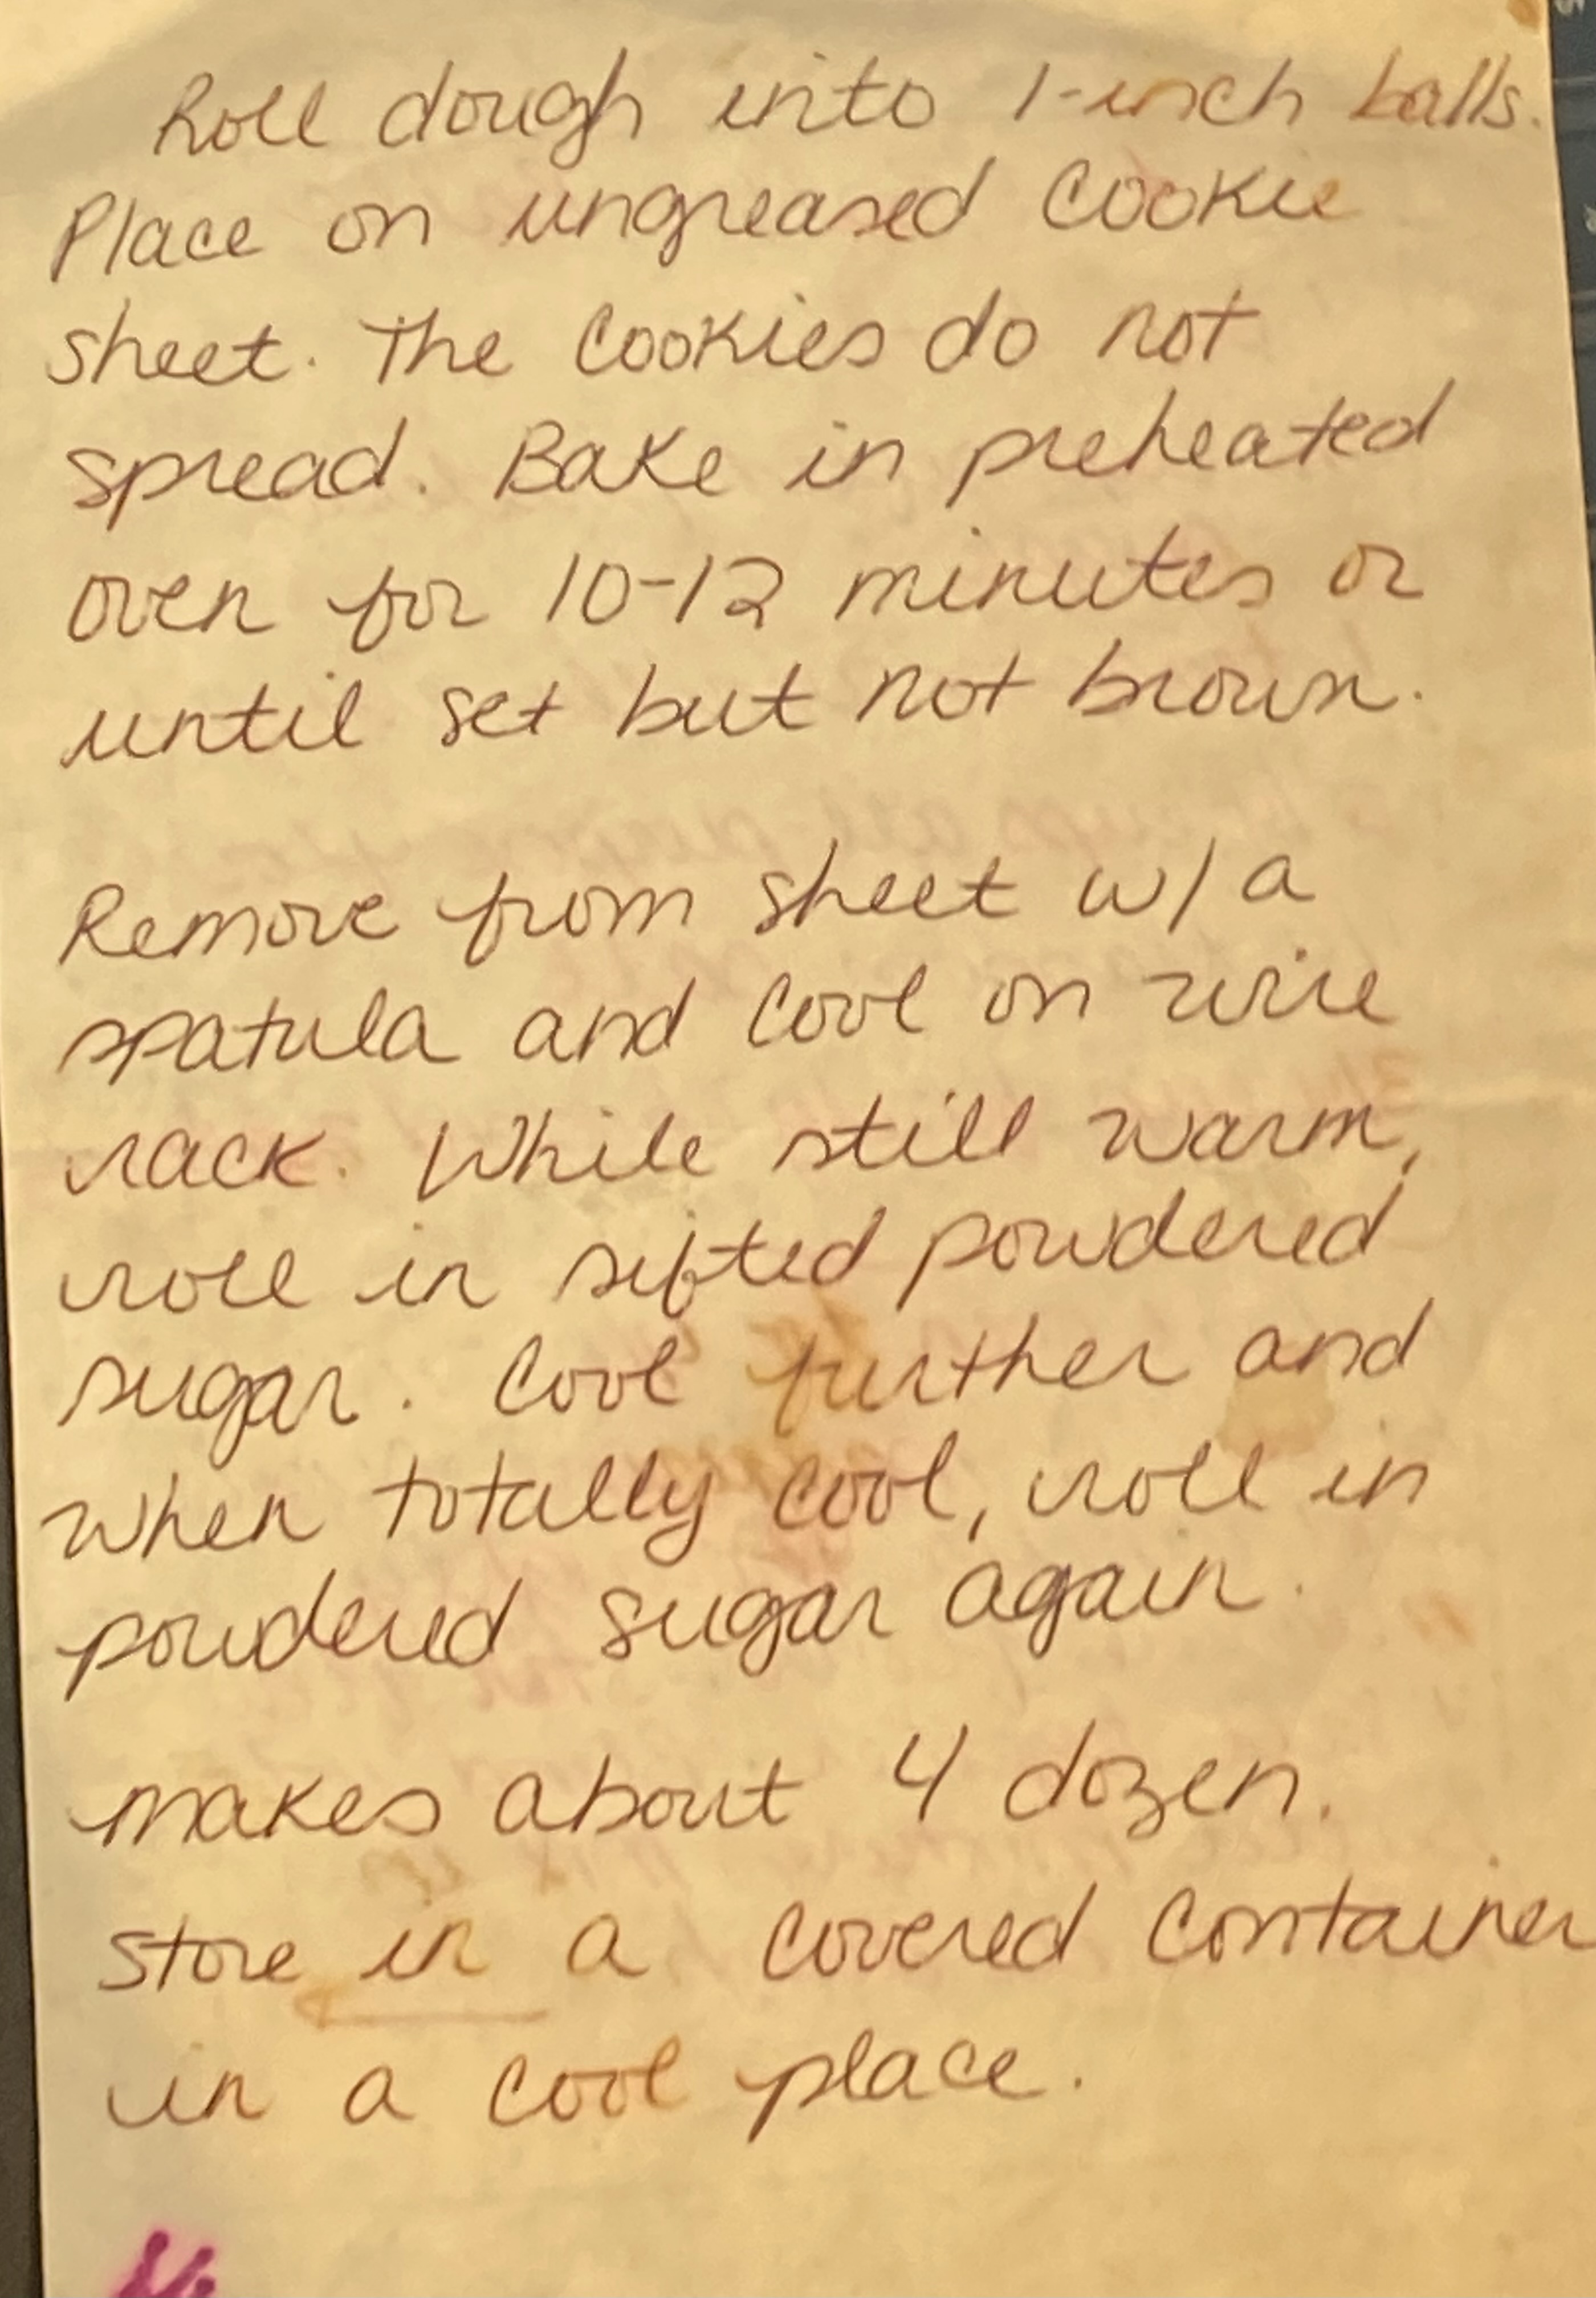 Roll dough into 1-inch balls.
Place on ungreased cookie
sheet. The cookies do not
spread. Bake in preheated
oven for 10-12 minutes or
until set but not brown.
Remove from sheet w/ a
spatula and cool on wire
rack. While still warm,
roll in sifted powdered
sugar. Cool further and
when totally cool, roll in
powdered sugar again.
makes about 4 dozen.
store in a covered container
in a cool place.